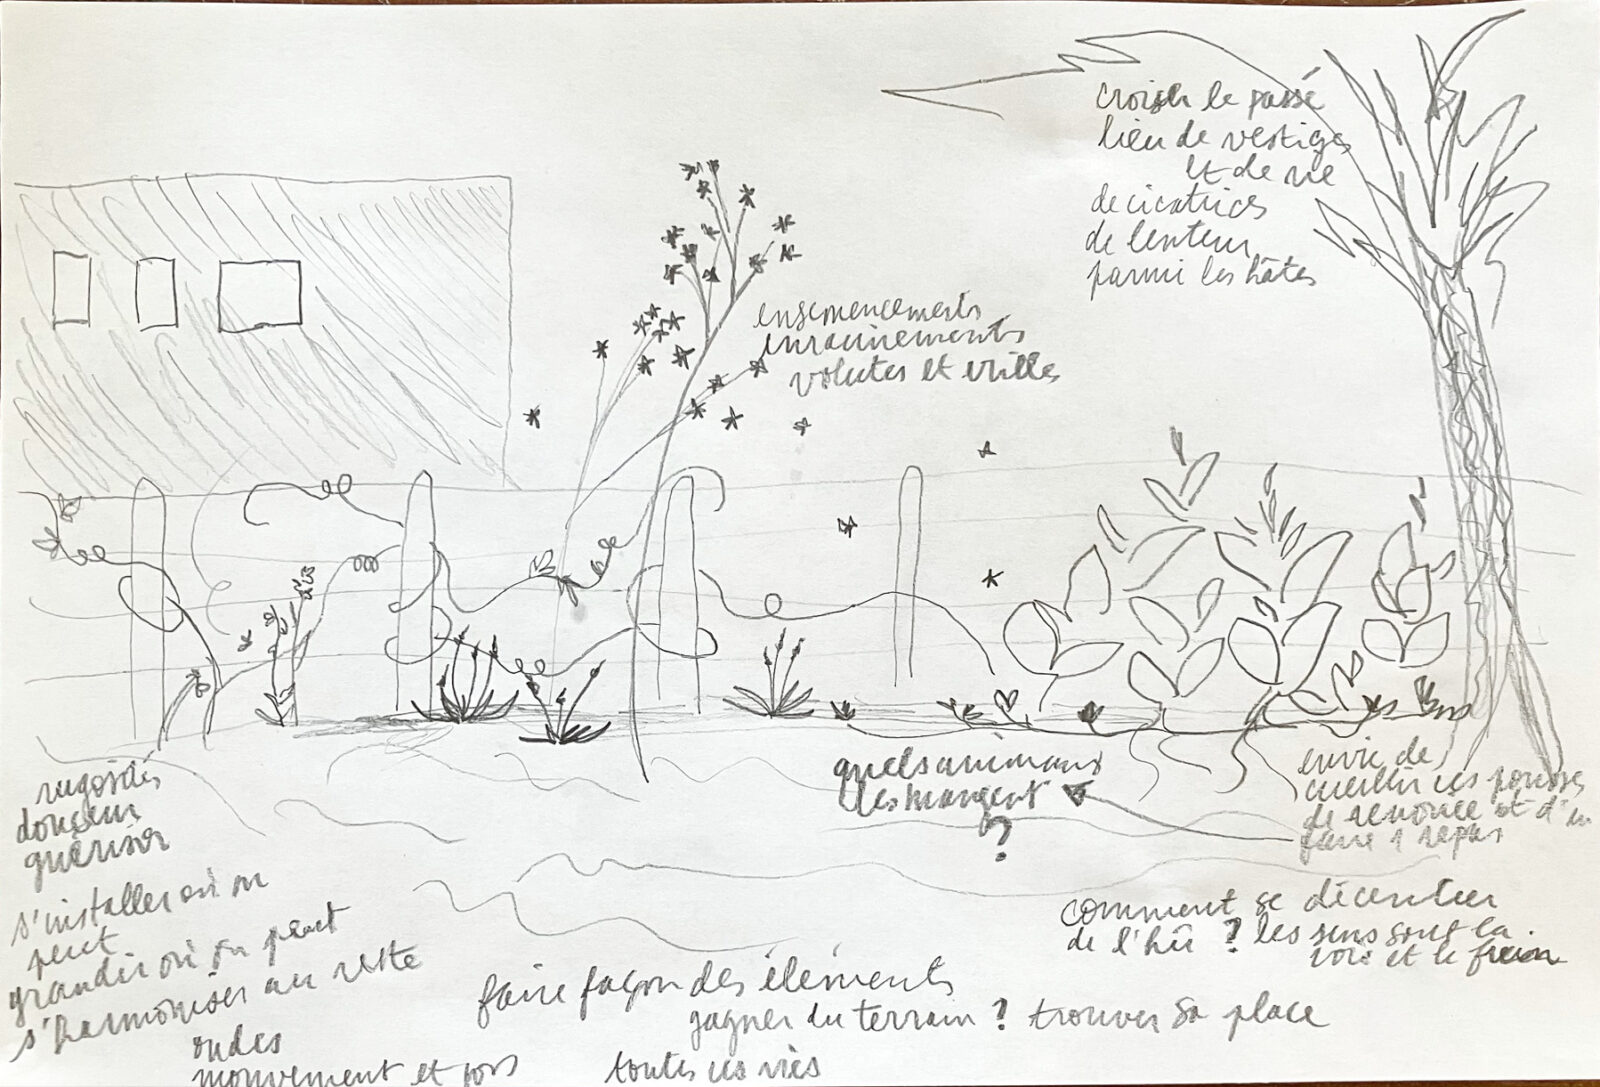 croiser le passé
lieu de vestiges
et de vie
de cicatrices
de lenteur
parmi les hâtes
ensemencements
enracinements
volutes et vrilles
quels animaux
les mangent
?
envie de
cueillir ces pousses
de renouée et d'en
faire 1 repas
rugosités
douceur
guérison
s'installer où on
peut
grandir où on peut
s'harmoniser au reste
ondes
mouvement et
comment se décentrer
de l' ? les sens sont la
voie et le frein
faire façon des éléments
gagner du terrain ? trouver sa place
toutes ces vies